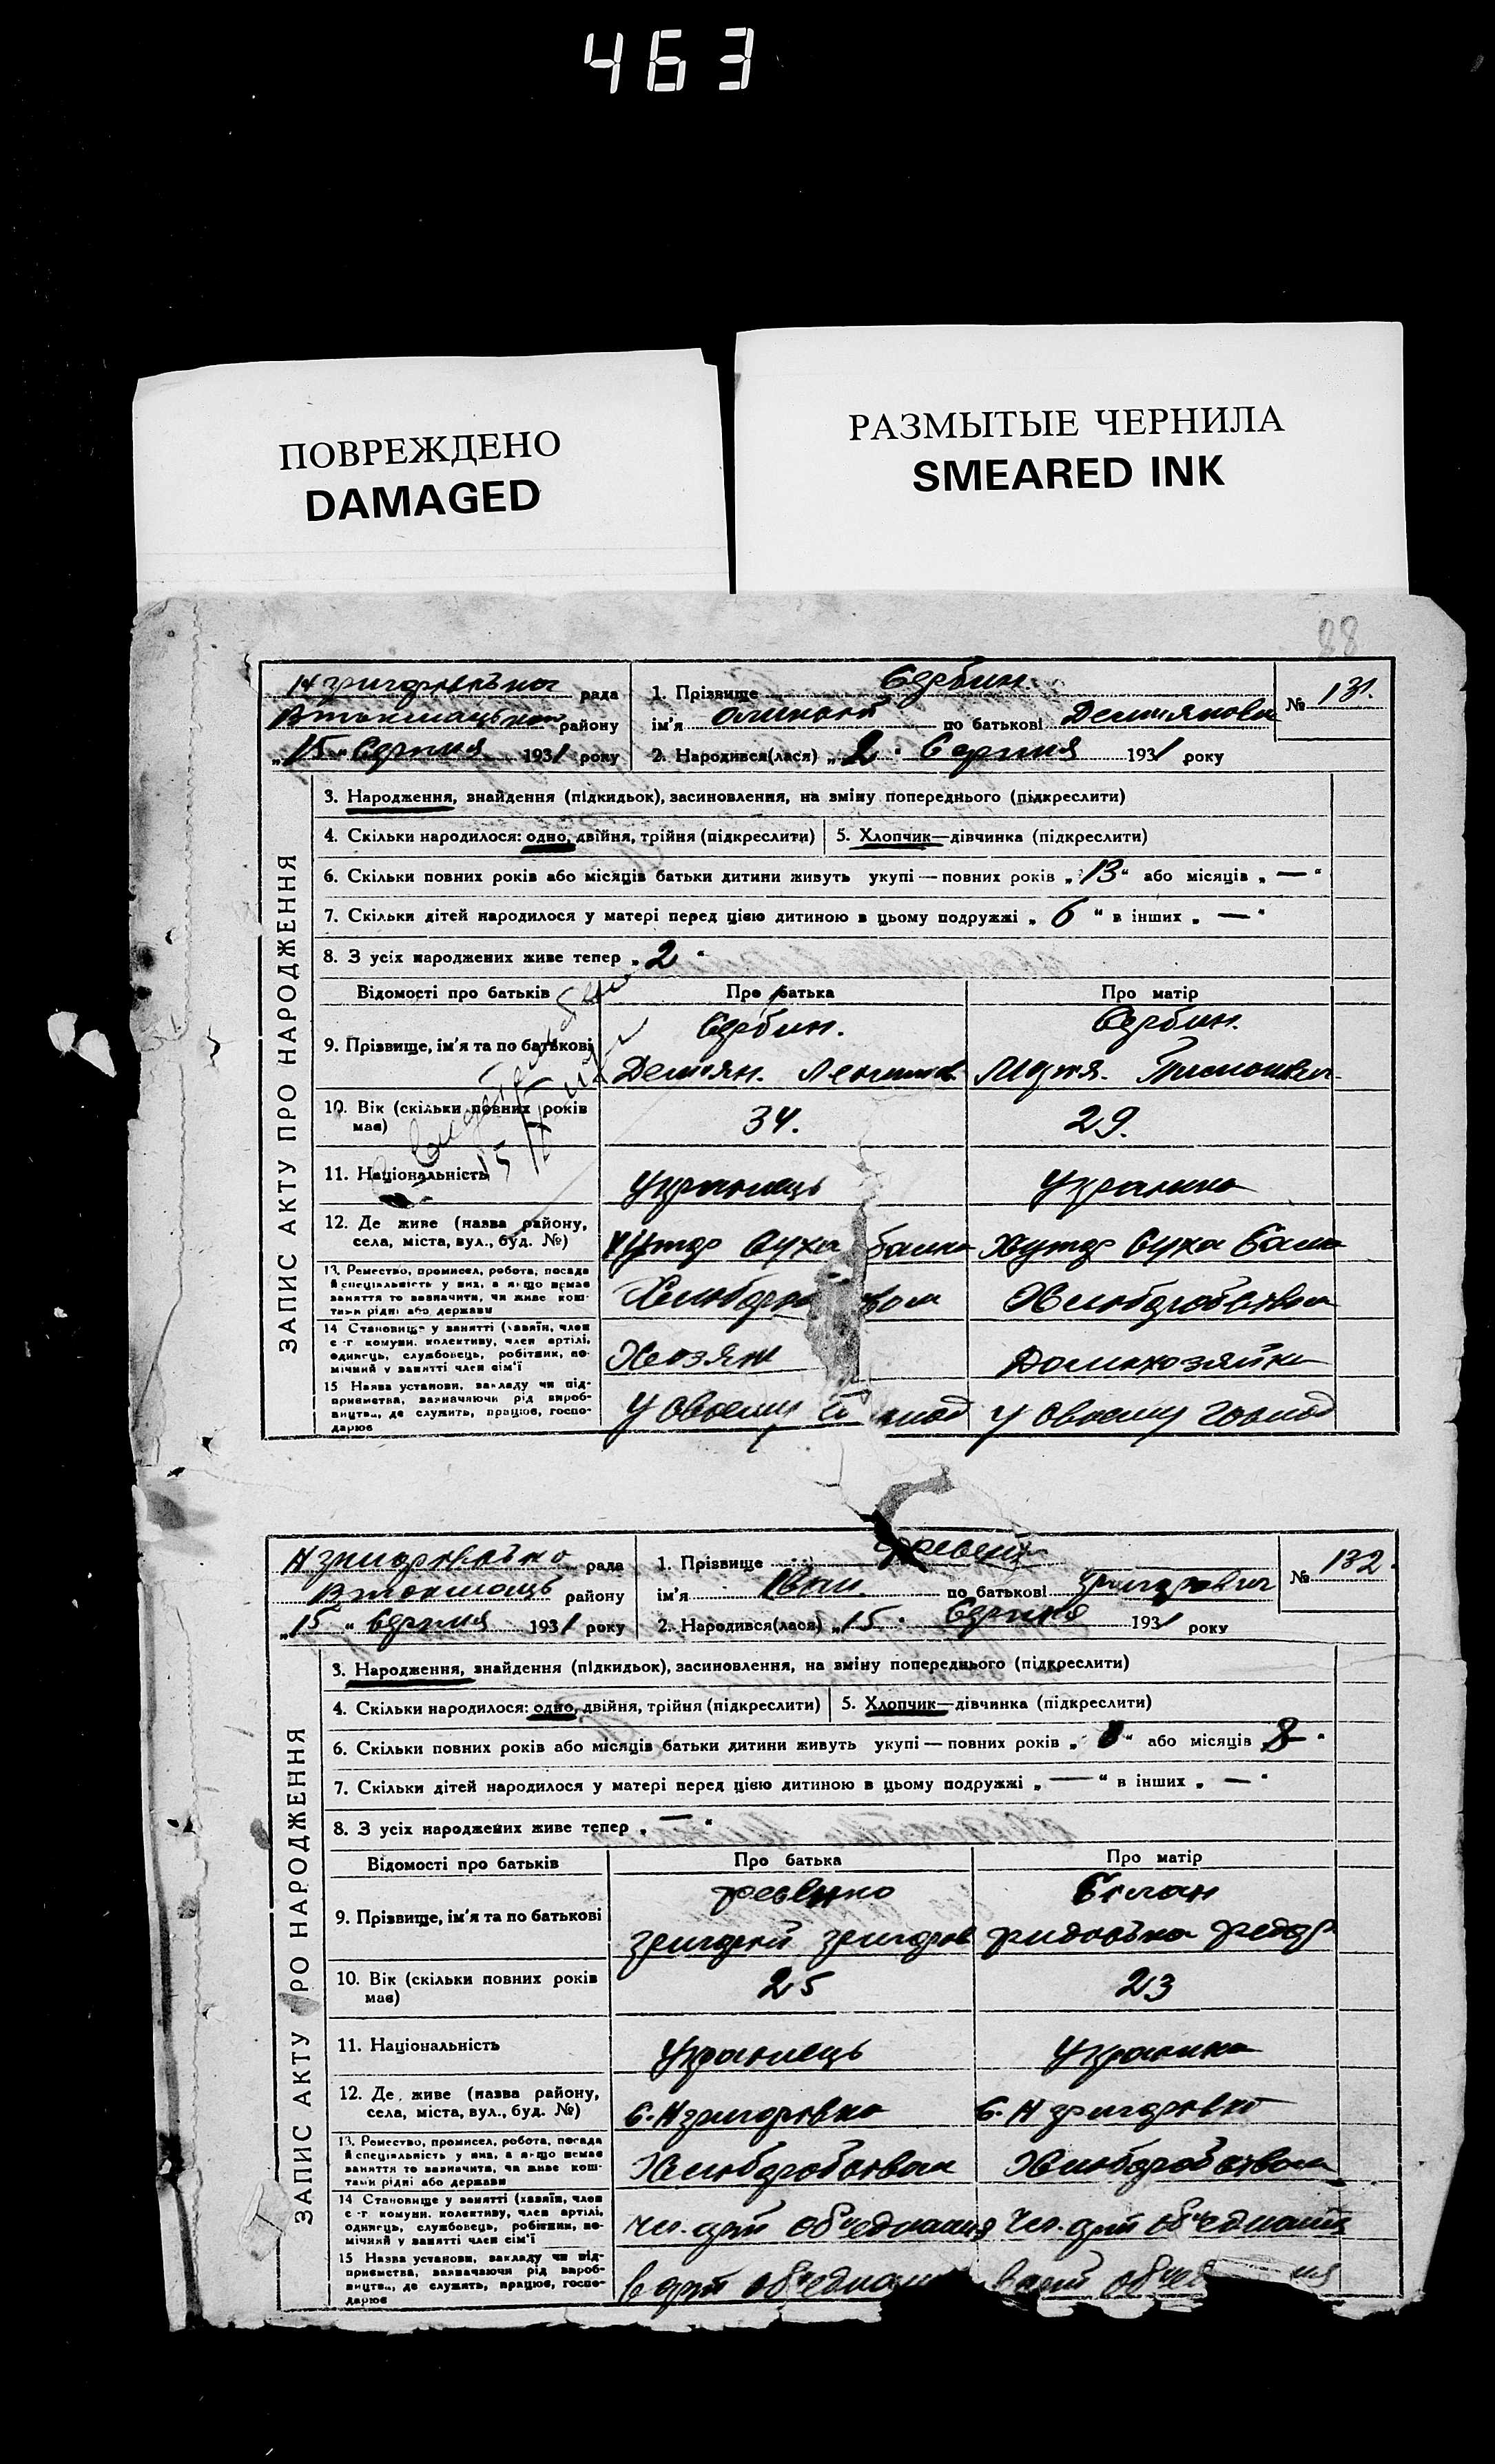 463
ПОВРЕЖДЕНО
DAMAGED
РАЗМЫТЫЕ ЧЕРНИЛА
SMEARED INK
88
рада
району
„15“ Серпня 1931 року
1. Прізвище Сербин.
ім’я по батькові
2. Народився(лася) „2“ Серпня 1931 року
№ 131.
ЗАПИС АКТУ ПРО НАРОДЖЕННЯ
3. Народження, знайдення (підкидьок), засиновлення, на зміну попереднього (підкреслити)
4. Скільки народилося: одно, двійня, трійня (підкреслити)
5. Хлопчик—дівчинка (підкреслити)
6. Скільки повних років або місяців батьки дитини живуть укупі — повних років „13“ або місяців „—“
7. Скільки дітей народилося у матері перед цією дитиною в цьому подружжі „6“ в інших „—“
8. З усіх народжених живе тепер „2“
Відомості про батьків
Про батька
Про матір
9. Прізвище, ім’я та по батькові
Сербин.
Сербин.
10. Вік (скільки повних років
має)
34.
29.
11. Національність
Українець
Українка
12. Де живе (назва району,
села, міста, вул., буд. №)
Хутор Суха балка
Хутор Суха балка
13. Ремество, промисел, робота, посада
й спеціяльність у них, а якщо немає
заняття то зазначити, чи живе кош-
тами рідні або держави
Хліборобством
14 Становище у занятті (хазяїн, член
с-г комуни, колективу, член артілі,
одинець, службовець, робітник, по-
мічний у занятті член сім’ї
Хозяін
Домохозяйка
15 Назва установи, закладу чи під-
приємства, зазначаючи рід вироб-
ництва, де служить, працює, госпо-
дарює
у своему господ
у своему господ
рада
району
„15“ Серпня 1931 року
1. Прізвище
ім’я Іван. по батькові Григорович
2. Народився(лася) „15“ Серпня 1931 року
№ 132.
ЗАПИС АКТУ ПРО НАРОДЖЕННЯ
3. Народження, знайдення (підкидьок), засиновлення, на зміну попереднього (підкреслити)
4. Скільки народилося: одно, двійня, трійня (підкреслити)
5. Хлопчик—дівчинка (підкреслити)
6. Скільки повних років або місяців батьки дитини живуть укупі — повних років або місяців 8
7. Скільки дітей народилося у матері перед цією дитиною в цьому подружжі „—“ в інших „—“
8. З усіх народжених живе тепер „—“
Відомості про батьків
Про батька
Про матір
9. Прізвище, ім’я та по батькові
10. Вік (скільки повних років
має)
25
23
11. Національність
Українець
Українка
12. Де живе (назва району,
села, міста, вул., буд. №)
С. Н григоровка
С. Н григоровка
13. Ремество, промисел, робота, посада
й спеціяльність у них, а якщо немає
заняття то зазначити, чи живе кош-
тами рідні або держави
Хліборобством
Хліборобством
14 Становище у занятті (хазяїн, член
с-г комуни, колективу, член артілі,
одинець, службовець, робітник, по-
мічний у занятті член сім’ї
чл. арт об'єднання
чл. арт об'єднання
15 Назва установи, закладу чи під-
приємства, зазначаючи рід вироб-
ництва, де служить, працює, госпо-
дарює
в арт
в арт